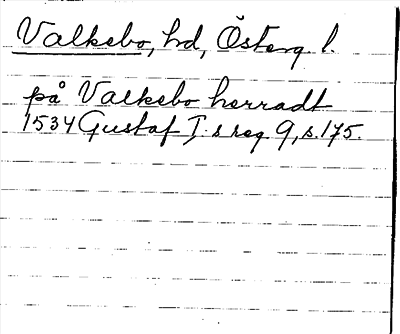 Valkebo, hd, Österg. l.
på Valkebo herradt
1534 Gustaf I:s reg 9, s. 175.